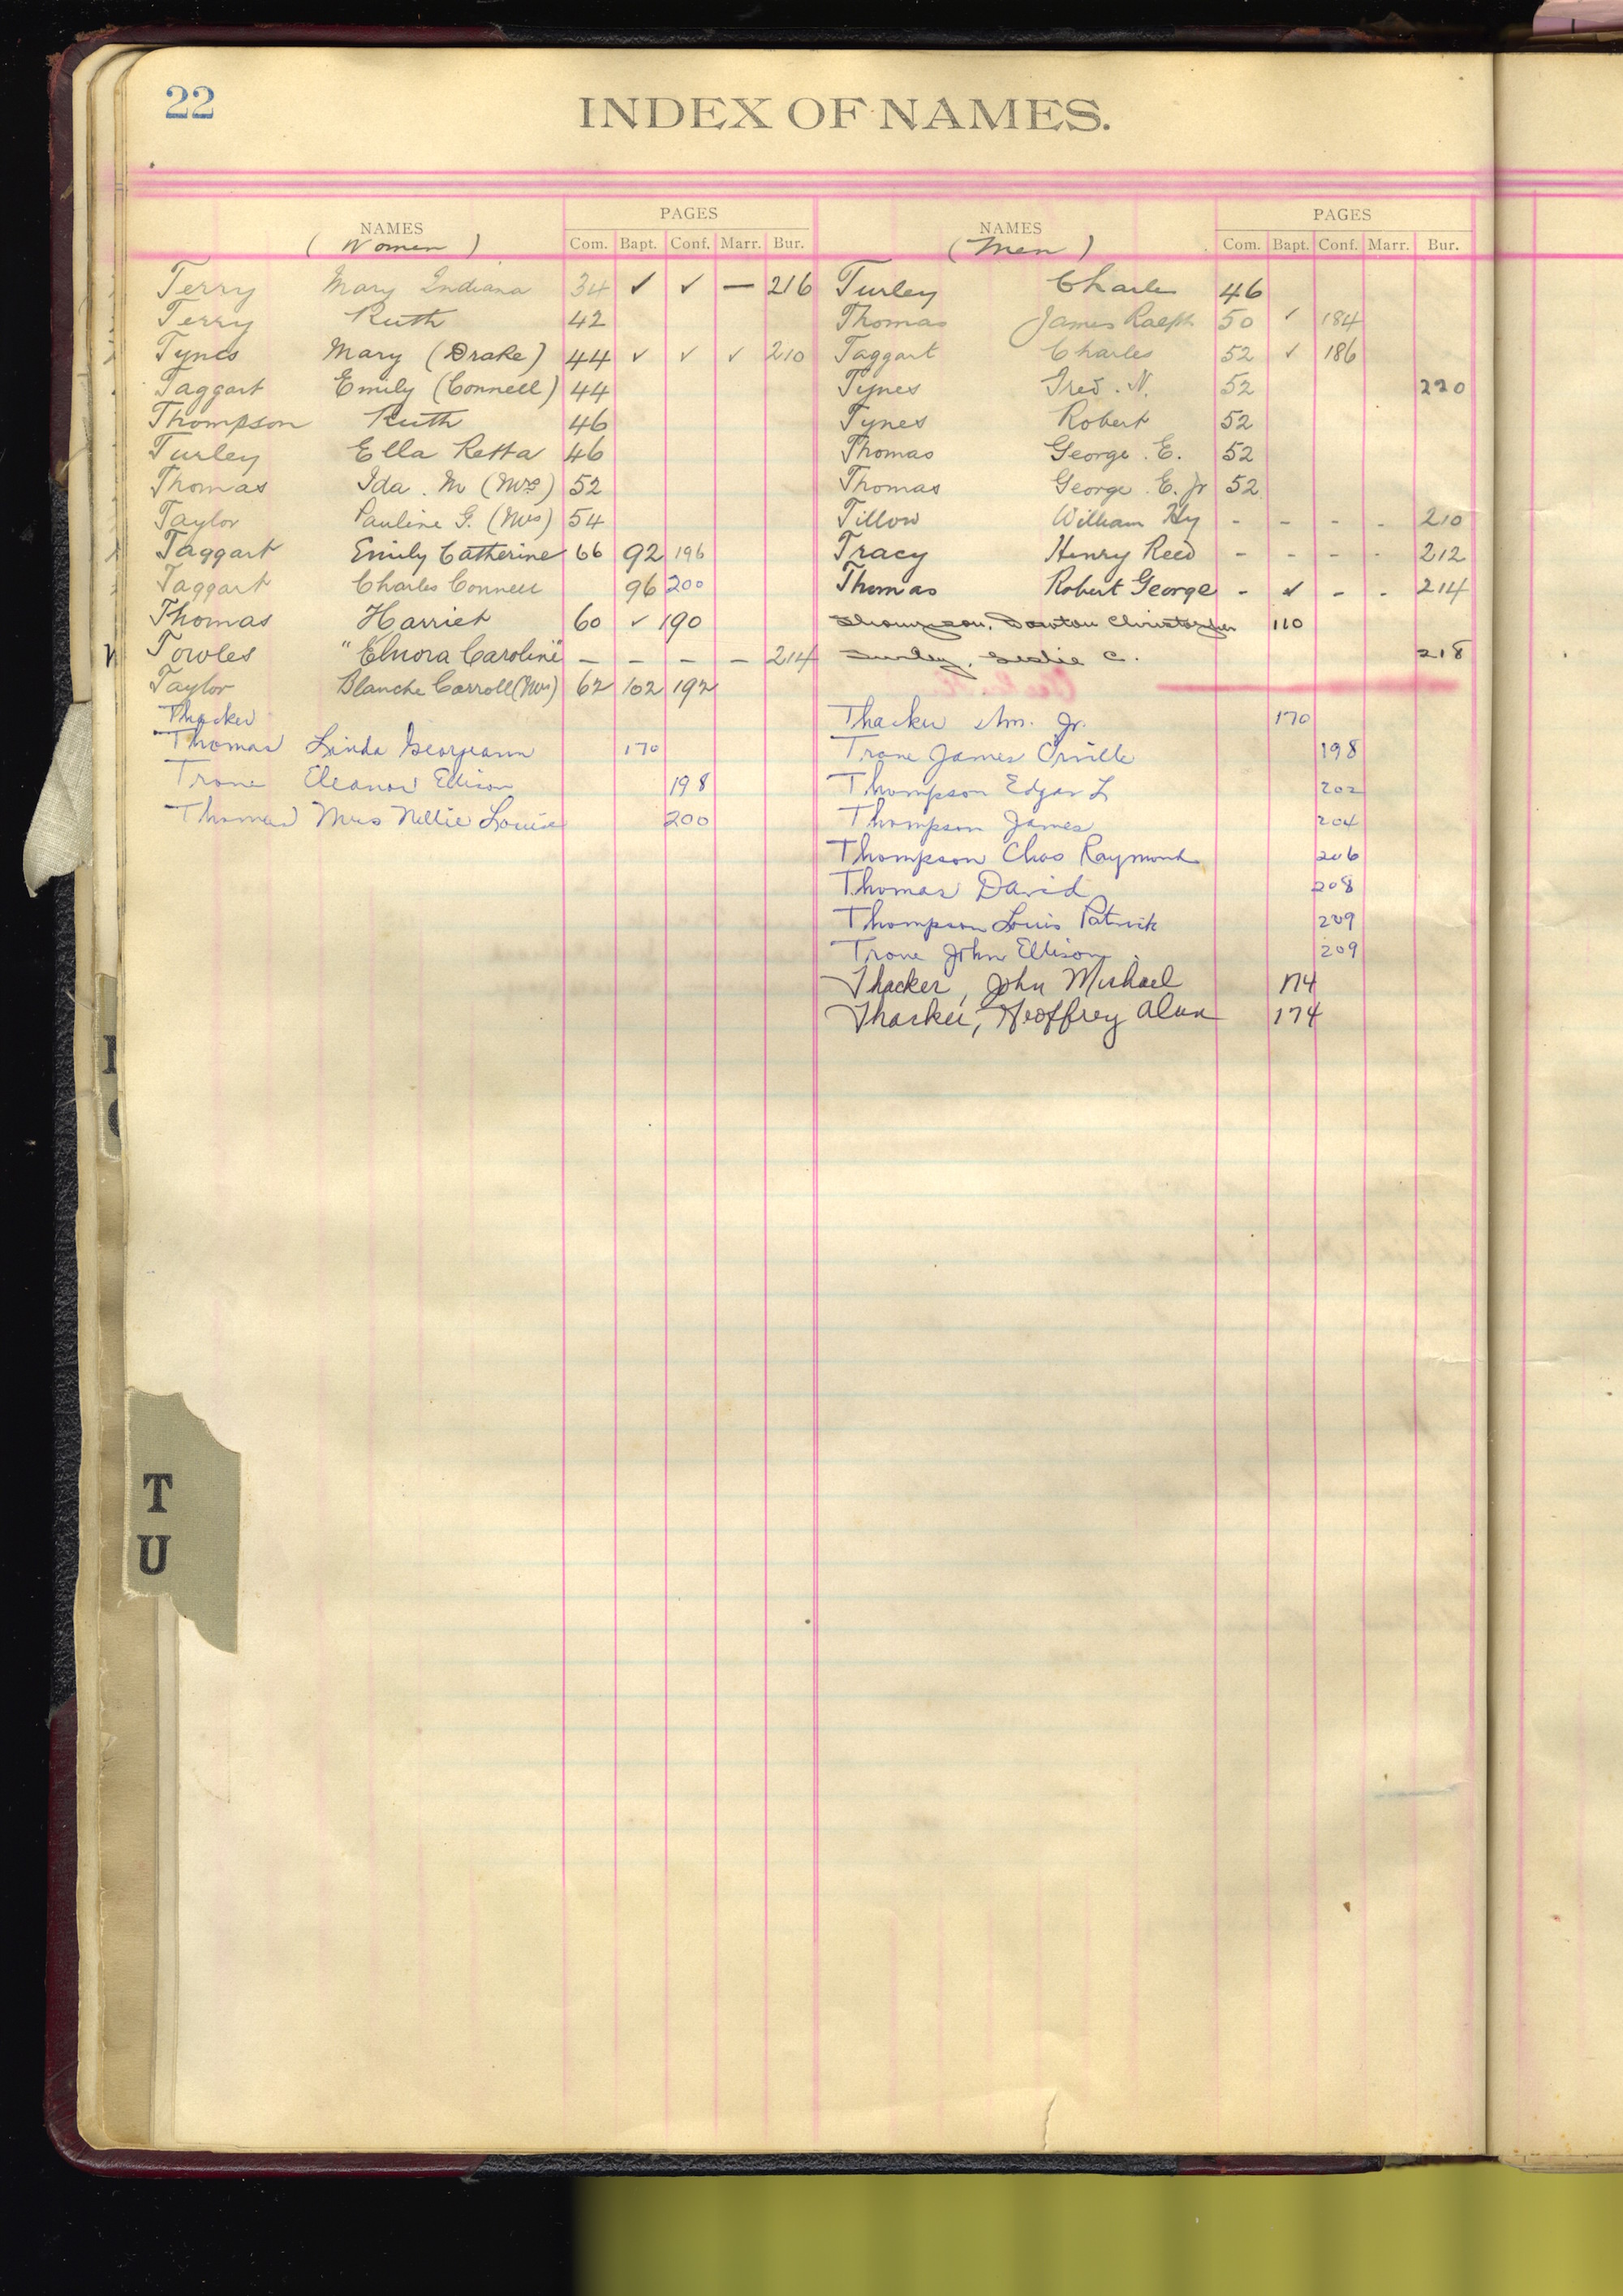 22
INDEX OF NAMES.
NAMES PAGES NAMES PAGES
(Women) Com. Bapt. Conf. Marr. Bur. (Men) Com. Bapt. Conf. Marr. Bur.
Terry Mary Indiana 34 ✓ ✓ — 216 Turley Charles 46
Terry Ruth 42 Thomas James Ralph 50 ✓ 184
Tynes Mary (Drake) 44 ✓ ✓ ✓ 210 Taggart Charles 52 ✓ 186
Taggart Emily (Connell) 44 Tynes Fred. N. 52 220
Thompson Ruth 46 Tynes Robert 52
Turley Ella Retta 46 Thomas George. E. 52
Thomas Ida. M (Mrs) 52 Thomas George. E. Jr 52
Taylor Pauline G. (Mrs) 54 Tillow William Hy - - - - 210
Taggart Emily Catherine 66 92 196 Tracy Henry Reed - - - - 212
Taggart Charles Connell 96 200 Thomas Robert George - ✓ - - 214
Thomas Harriet 60 ✓ 190 Thompson, Dawton Christopher 110
Towles "Elnora Caroline" — — — — 214 Turley, Leslie C. 218
Taylor Blanche Carroll (Mrs) 62 102 192
Thacker Thacker Wm. Jr. 170
Thomas Linda Georgeann 170 Trone James Orville 198
Trone Eleanor Ellison 198 Thompson Edgar L 202
Thomas Mrs Nellie Louise 200 Thompson James 204
Thompson Chas Raymond 206
Thomas David 208
Thompson Louis Patrick 209
Trone John Ellison 209
Thacker, John Michael 174
Thacker, Geoffrey Alan 174
T
U